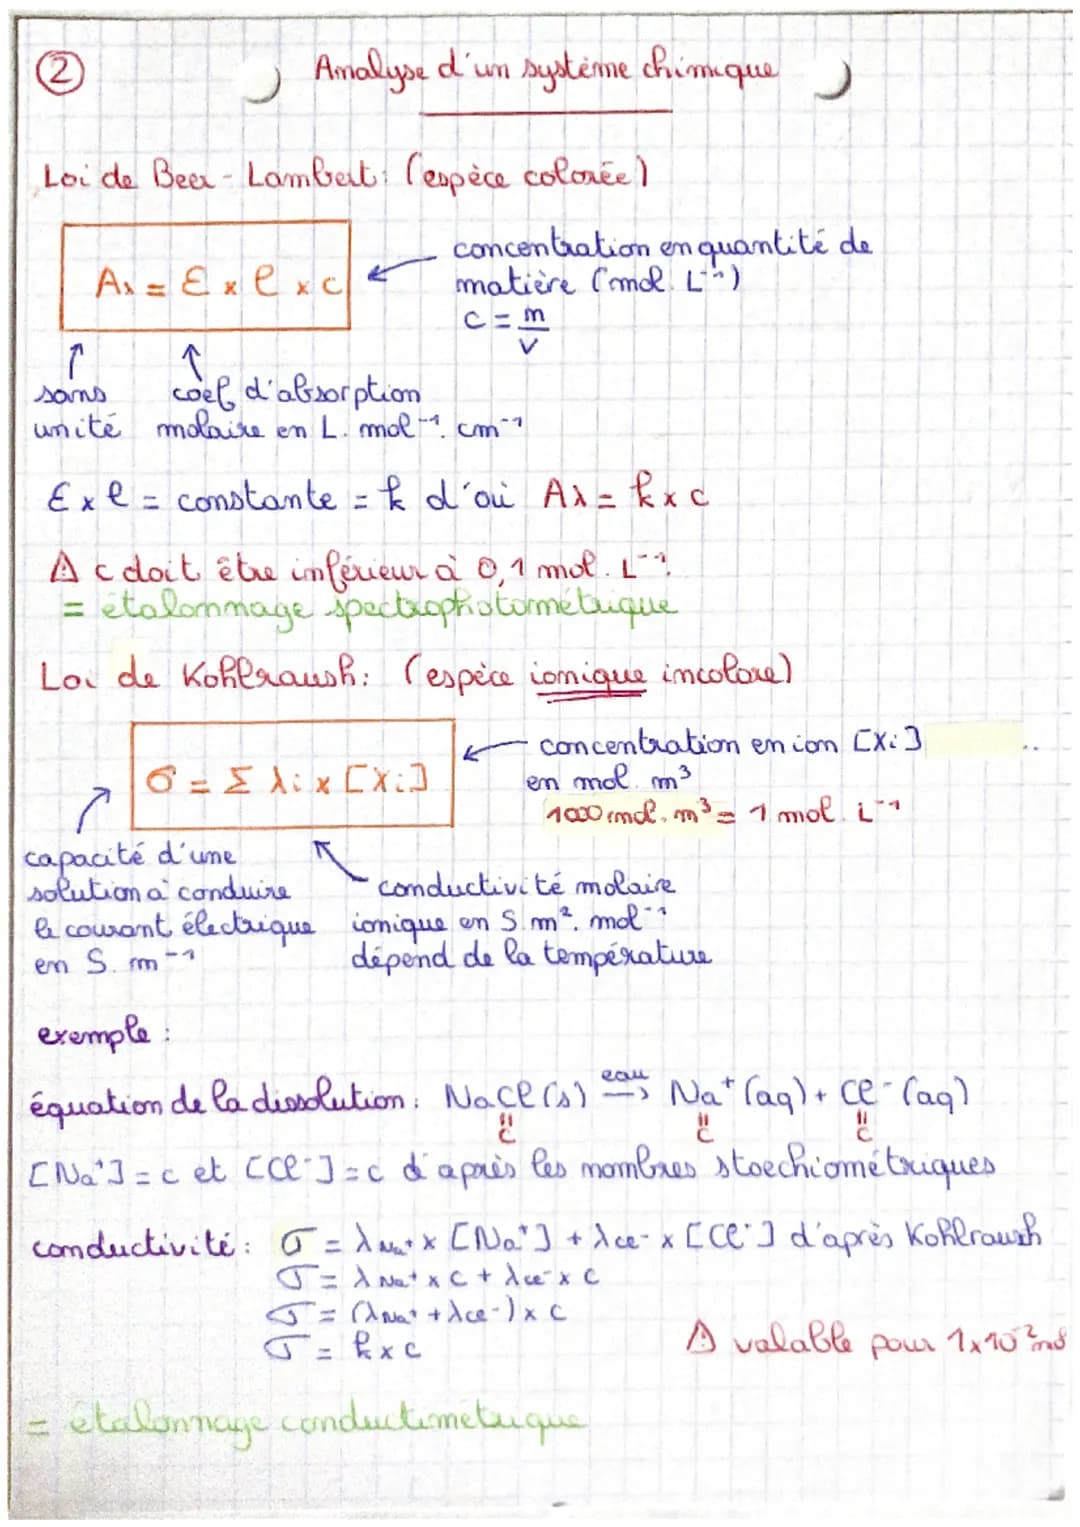 ②
Analyse d'un système chimique
Loi de Beer-Lambert : (espèce colorée)
Aλ = ε x l x c
concentration en quantité de
matière (mol. L⁻¹)
c = n/V
sans
unité
coef d'absorption
molaire en L. mol⁻¹. cm⁻¹
ε x l = constante = k d'où Aλ = k x c
⚠ c doit être inférieur à 0,1 mol. L⁻¹.
= étalonnage spectrophotométrique
Loi de Kohlraush : (espèce ionique incolore)
σ = Σ λi x [Xi]
concentration en ion [Xi]
en mol. m³
1000 mol. m³ = 1 mol. L⁻¹
capacité d'une
solution à conduire
le courant électrique
en S. m⁻¹
conductivité molaire
ionique en S. m². mol⁻¹
dépend de la température
exemple :
équation de la dissolution : NaCl (s) eau→ Na⁺ (aq) + Cl⁻ (aq)
= c = c = c
[Na⁺] = c et [Cl⁻] = c d'après les nombres stoechiométriques
conductivité : σ = λNa⁺ x [Na⁺] + λCl⁻ x [Cl⁻] d'après Kohlraush
σ = λNa⁺ x c + λCl⁻ x c
σ = (λNa⁺ + λCl⁻) x c
σ = k x c
⚠ valable pour 1x10⁻²
= étalonnage conductimétrique